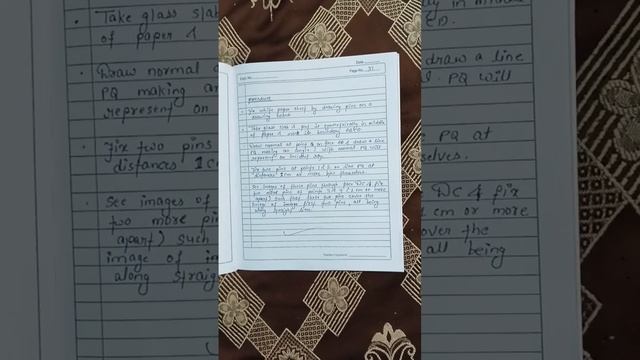 Take glass slab
of paper &
Draw normal
PQ making an
represent on
Fix two pins
distances 1 c
See images of
two more pin
apart) such
image of in
along straig
Date
Page No. 31
procedure
Fix white paper sheet by drawing pins on a
drawing board
Take glass slab & put it symmetrically in middle
of paper & mark its boundary ABCD.
Draw normal at point on face AB & draw a line
PQ making an angle i with normal. PQ will
represent an incident ray.
Fix two pins at points 1 & 2 on line PQ at
distances 1 cm or more b/w themselves.
See images of these pins through face DC & fix
two more pins at points 3 & 4 (1 cm or more
apart) such that these two pins cover the
image of first two pins, all being
along straight line.
Teacher's Signature
in middle
draw a line
PQ will
PQ at
selves.
DC & fix
1 cm or more
over the
all being